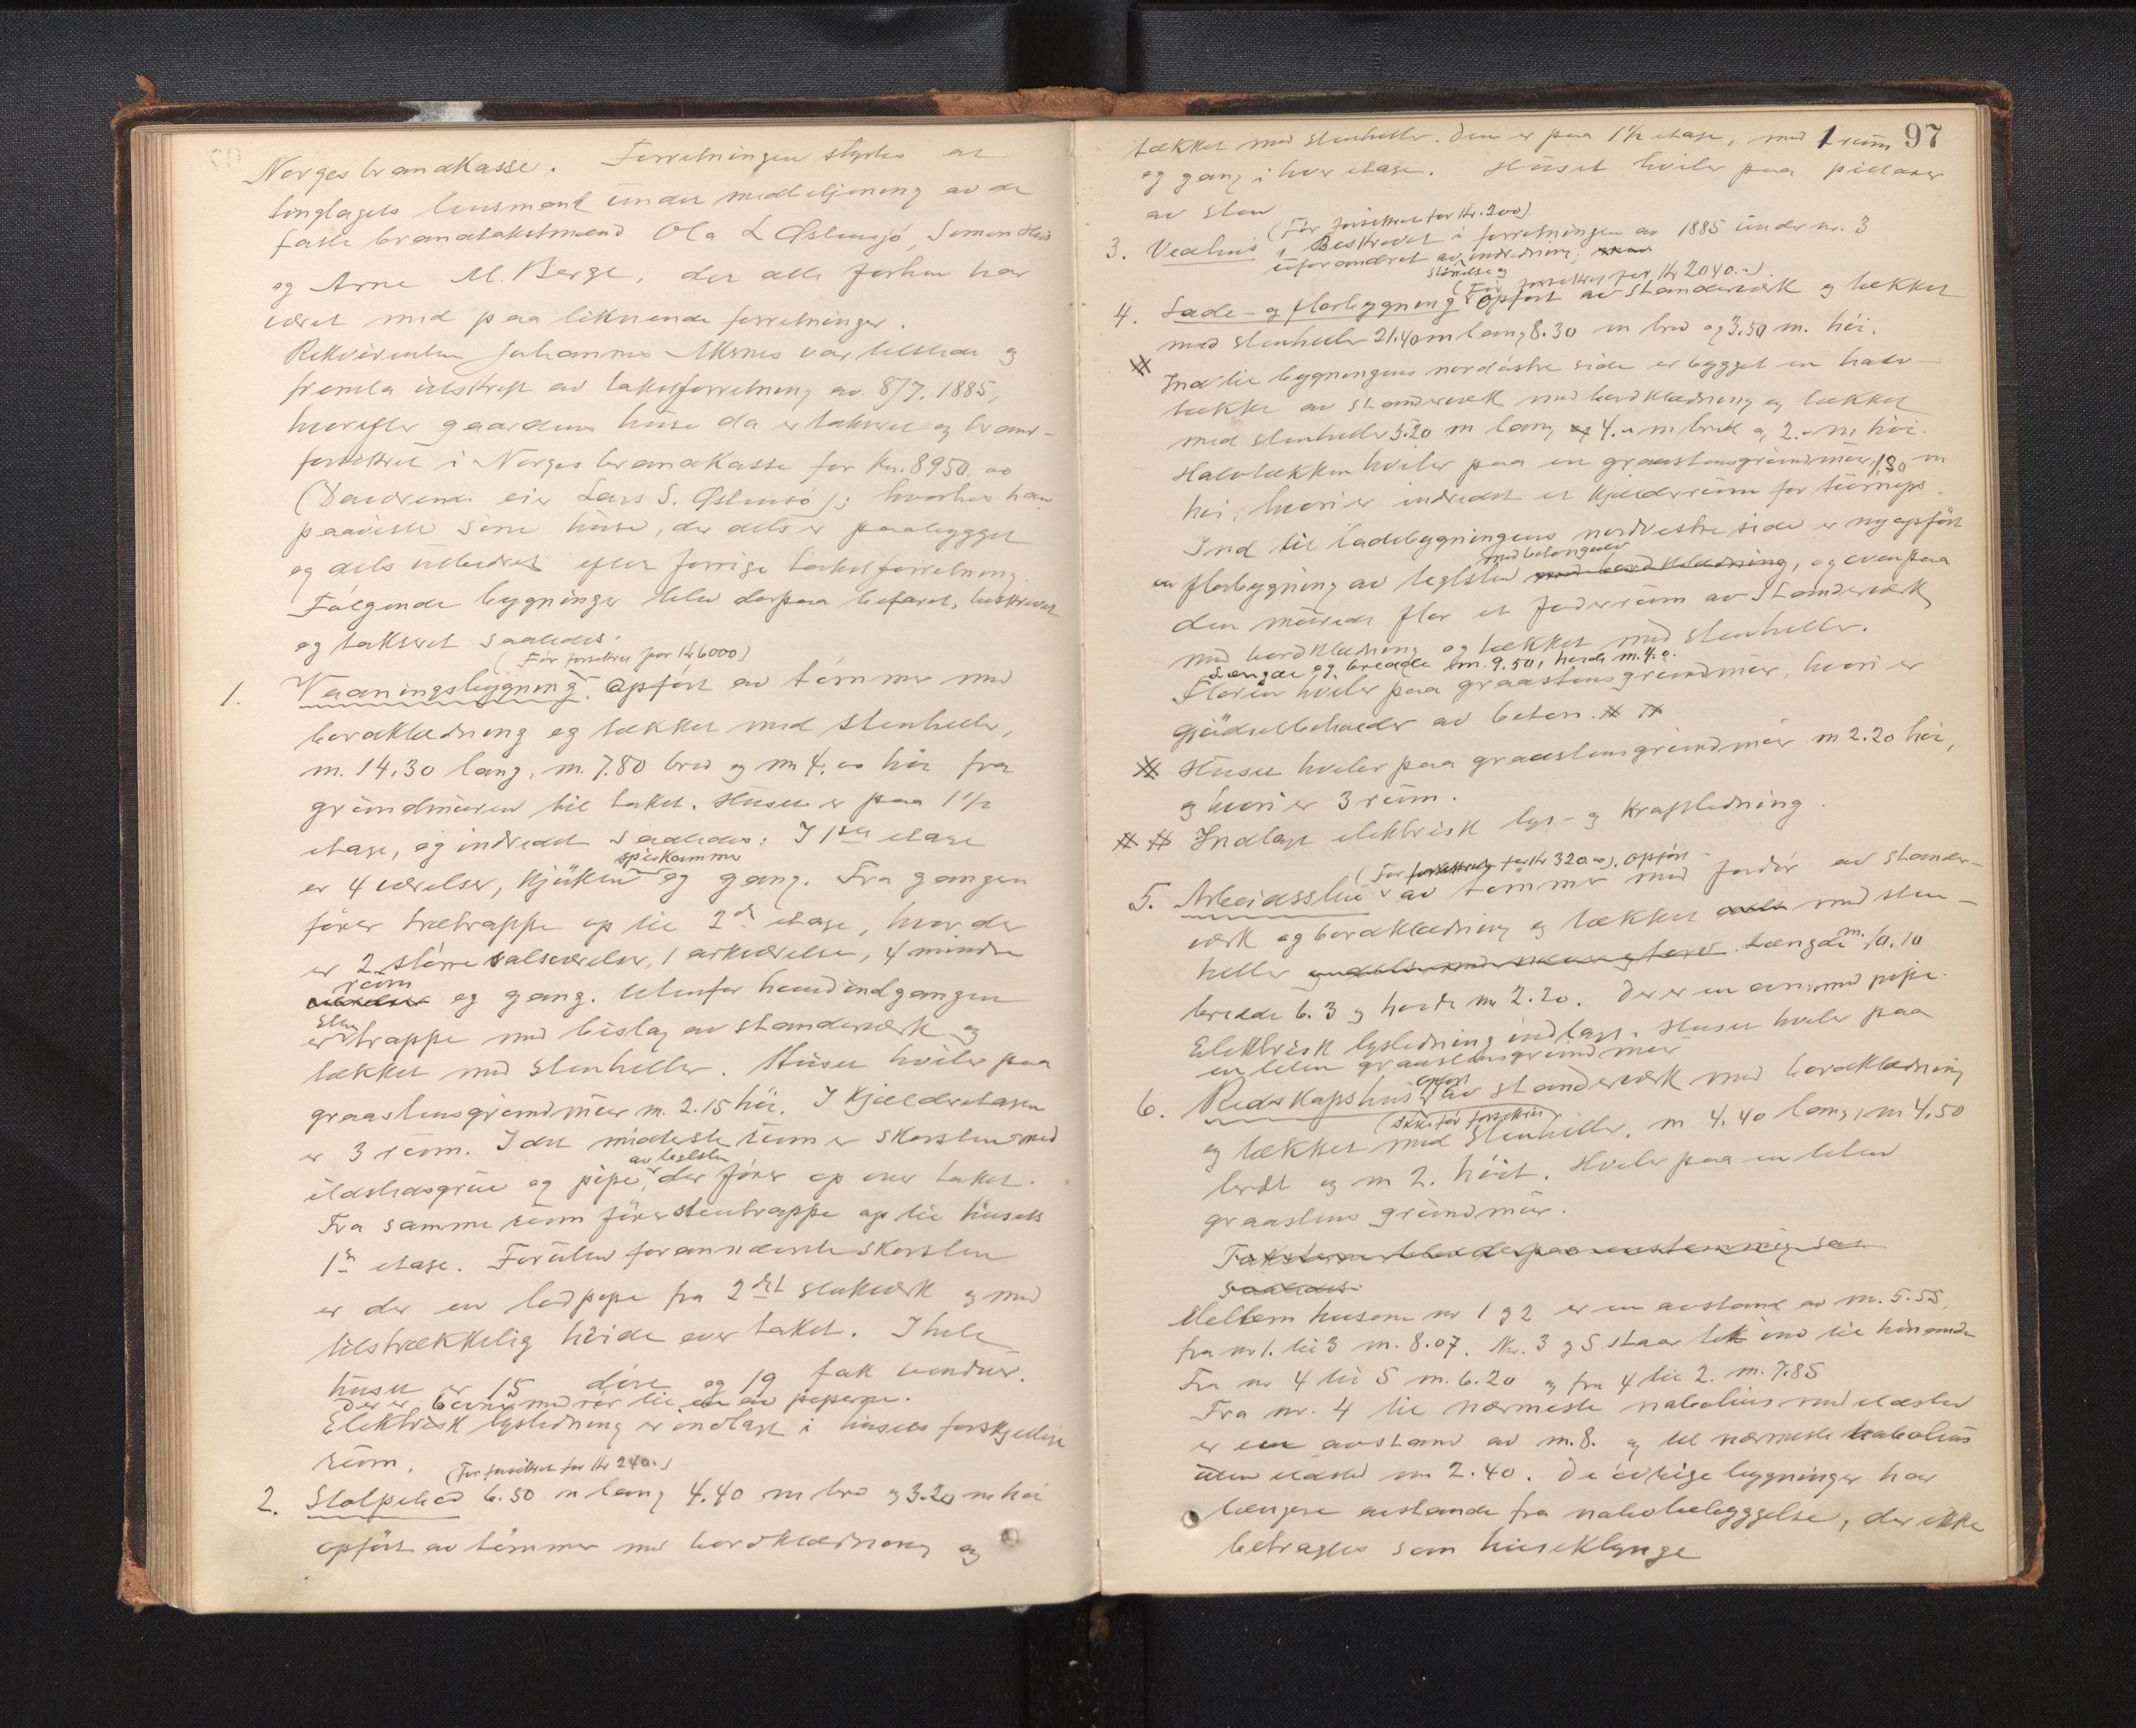 Norges brandkasse. Forretningen styres av
tinglagets lensmand under medbetjening av de
faste brandtakstmænd Ola L Østensjö, Simon
og Arne M. Berge, der alle forhen har
været med paa liknende forretninger.
Rekvirenten Johannes Aksnes var tilstede og
fremla utskrift av takstforretning av 8/7. 1885,
hvorefter gaardens huse da er takseret og brand-
forsikret i Norges brandkasse for Kr. 8950.00
(Daværende eier Lars S. Østensö); hvorhos han
paaviste sine huse, der dels er paabygget
og dels utbedret efter forrige takstforretning.
Følgende bygninger blev derpaa befaret, beskrevet
og takseret saaledes:
(Før forsikret for Kr 6000)
1. Vaaningsbygning. Opført av tömmer med
bordklædning og tækket med stenheller,
m. 14.30 lang, m. 7.80 bred og m 4.00 høi fra
grundmuren til taket. Huset er paa 1 1/2
etage, og indredet saaledes: I 1ste etage
spiskammer
er 4 værelser, kjøkken og gang. Fra gangen
fører trætrappe op til 2den etage, hvor der
er 2 større salsværelser, 1 arkværelse, 4 mindre
rum
værelser og gang. Utenfor hovedindgangen
sten
er trappe med bislag av standerværk og
tækket med stenheller. Huset hviler paa
graastensgrundmur m. 2.15 høi. I kjælderetagen
er 3 rum. I det midterste rum er skorsten med
av teglsten
ildstedsgrue og pipe, der fører op over taket.
Fra samme rum fører stentrappe op til husets
1ste etage. Foruten forannævnte skorsten
er der en lodpipe fra 2det stokverk og med
tilstrækkelig høide over taket. I hele
huset er 15 døre og 19 fak vinduer.
Der er 6 ovner med rør til en av piperne.
Elektrisk lysledning er indlagt i husets forskjellige
rum.
(Før forsikret for Kr 240.-)
2. Stolpebod 6.50 m lang 4.40 m bred og 3.20 m høi
opført av tömmer med bordklædning og
97
tækket med stenheller. Den er paa 1 1/2 etage, med 1 rum
og gang i hver etage. Huset hviler paa pillarer
av sten
(Før forsikret for Kr. 200)
3. Vedhus, Beskrevet i forretningen av 1885 under nr. 3
uforandret av indredning,
størrelse og
(Før forsikret for Kr 2040.-).
4. Lade- og florbygning opført av standerværk og tækket
med stenheller 21.40 m lang 8.30 m bred og 3.50 m. høi.
# Ind til bygningens nordøstre side er bygget en halv-
tække av standerværk med bordklædning og tækket
med stenheller 5.20 m lang og 4.- m bred og 2.- m høi.
Halvtækken hviler paa en graastensgrundmur 1,80 m
høi, hvori er indredet et kjælderrum for turneps.
Ind til ladebygningens nordvestre side er nyopført
med betongulv
en florbygning av teglsten med bordklædning, og ovenpaa
den murede flor et foderrum av standerværk
med bordklædning og tækket med stenheller.
Længde og bredde m. 9.50, høide m. 4.0.
Floren hviler paa graastensgrundmur, hvori er
gjødselbeholder av beton. # #
# Huset hviler paa graastensgrundmur m 2.20 høi,
og hvori er 3 rum.
# # Indlagt elektrisk lys- og kraftledning.
(Før forsikret for Kr 320.00). Opført
5. Arbeidsstue av tömmer med fordør av stander-
værk og bordklædning og tækket dels med sten-
heller længde m. 10.10
bredde 6.3 og høide m 2.20. Der er en ovn med pipe.
Elektrisk lysledning indlagt. Huset hviler paa
en liten graastensgrundmur
opført
6. Redskapshus av standerværk med bordklædning
(ikke før forsikret)
og tækket med stenheller, m 4.40 lang, m 4.50
bredt og m 2. høit. Hviler paa en liten
graastens grundmur.
Taksterne blev derpaa enstemmig sat
saaledes:
Mellem husene nr 1 og 2 er en avstand av m. 5.55,
fra nr 1. til 3 m. 8.07. Nr. 3 og 5 staar tæt ind til hinanden
Fra nr 4 til 5 m. 6.20 og fra 4 til 2. m. 7.85
Fra nr. 4 til nærmeste nabohus med ildsted
er en avstand av m. 8. og til nærmeste nabohus
uten ildsted m 2.40. De øvrige bygninger har
længere avstande fra nabobebyggelse, der ikke
betragtes som huseklynge